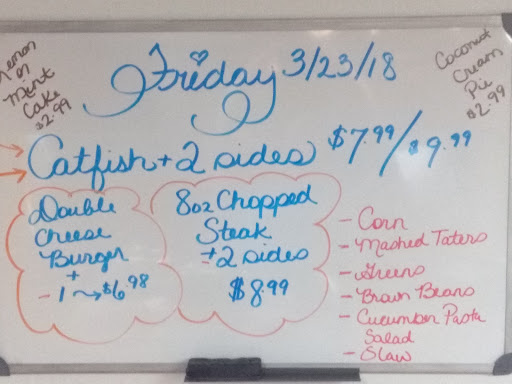 Lemon
or
Mint
Cake
$2.99
Friday 3/23/18
Coconut
Cream
Pie
$2.99
Catfish + 2 sides $7.99/$9.99
Double
Cheese
Burger
+
- 1 → $6.98
8oz Chopped
Steak
+ 2 sides
$8.99
- Corn
- Mashed Taters
- Greens
- Brown Beans
- Cucumber Pasta
Salad
- Slaw